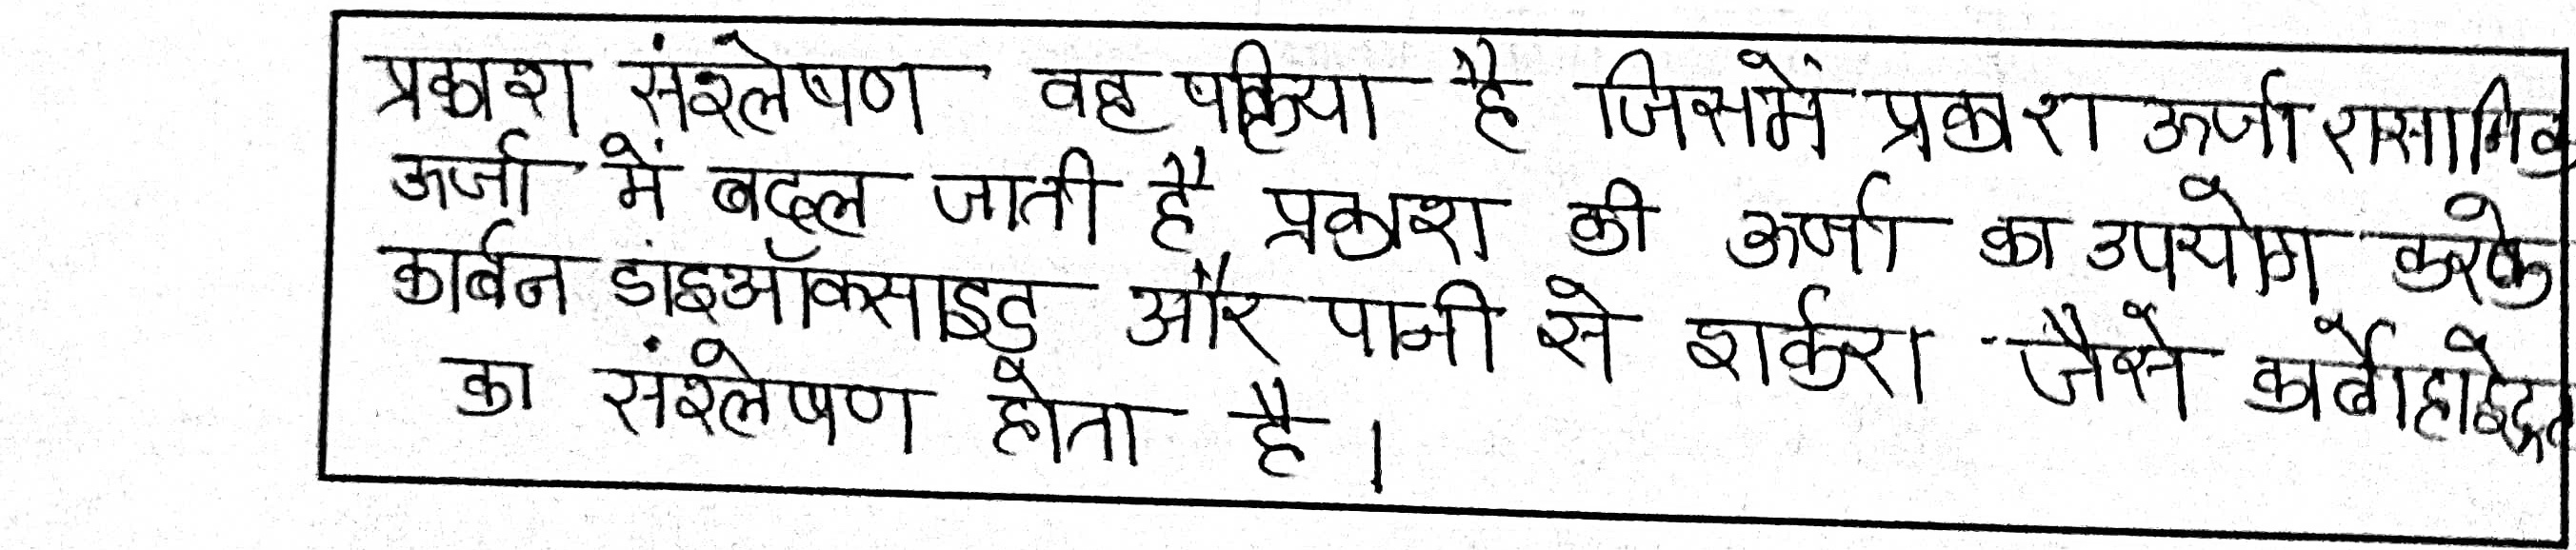 प्रकाश संश्लेषण वह पक्रिया है जिसमें प्रकाश ऊर्जा रासानिक
ऊर्जा में बदल जाती है प्रकाश की ऊर्जा का उपयोग करके
कार्बन डांइऑक्साइड और पानी से शर्करा जैसे कार्बोहाइड्रेत
का संश्लेषण होता है।